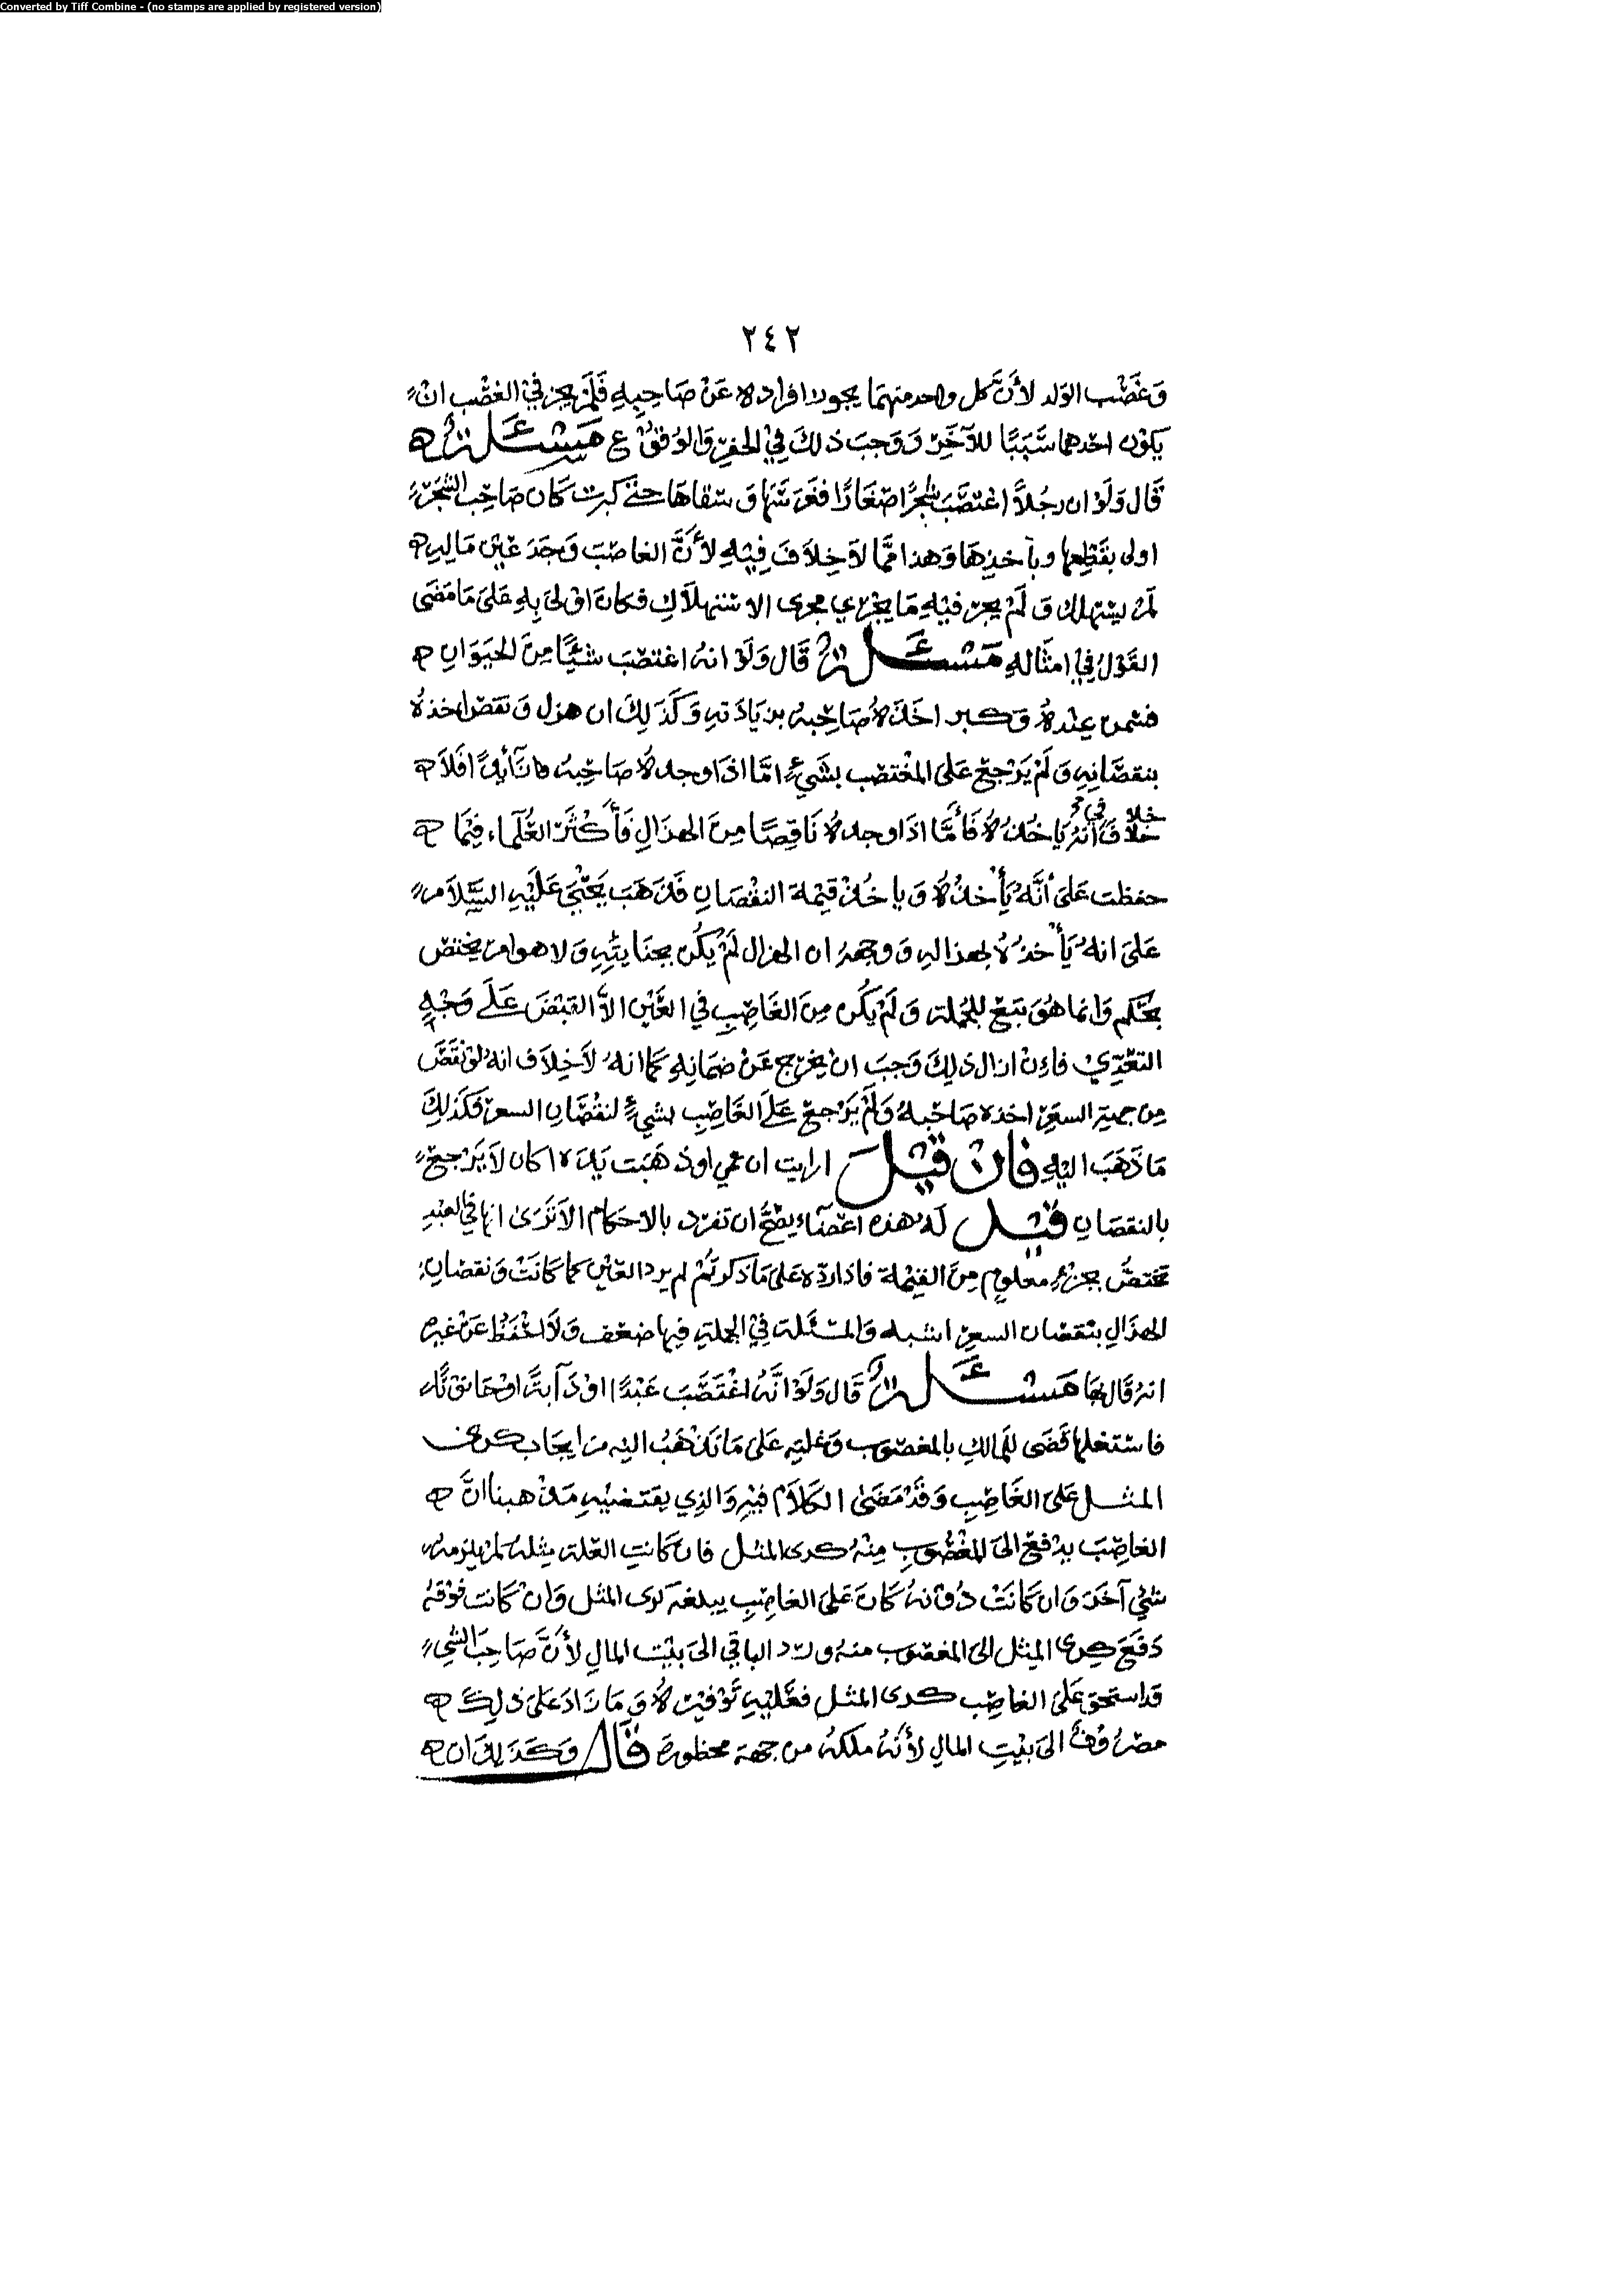 Converted by Tiff Combine - (no stamps are applied by registered version)
٢٤٢
وَغَصْب الوَلد لأَنَّ كل واحد منهمَا يجوز افراده عَنْ صَاحِبِهِ فَلَمْ يجز في الغصْب انْ
يكوْن احدهما سَبَبًا للآخَرِ وَوَجبَ ذلكَ فِي الحفر وَالوُقوْع مَسْئَلة
قَال وَلَوْ ان رجُلاً اغتصَبَ شجرًا صغَارًا فغَرسَهَا وَسَقاهَا حتى كبرت كَان صَاحِب الشجَرَة
اولى بقَطِعِهَا وبأخذِهَا وَهذا ممَّا لاَ خِلاَفَ فِيْهِ لأَنَّ الغاصبَ وَجَدَ عَيْن مَالِهِ
لمْ يستهلك وَلَمْ يجر فيْهِ مَا يجْري مجرى الاسْتهلاَكِ فكانَ اوْلىَ بِهِ عَلىَ مَا مَضَى
القوْلُ فِيْ امثَالهِ مَسْئَلة قَال وَلَوْ انهُ اغتصَبَ شيْئًا مِنَ الحَيَوَانِ
فسَمن عِنْدهُ وَكبر اخَذهُ صَاحِبهُ بزيَادَتِهِ وَكَذَلِكَ ان هزل وَنقصَ اخذهُ
بنقصَانِهِ وَلَمْ يَرْجعْ عَلىَ المغْتصب بشَيْءٍ امَّا اذَا وجدهُ صَاحِبهُ زَائدًا فَلاَ
خلاَفَ فِي أَنهُ يَاخُذهُ فَأَمَّا اذَا وجدهُ نَاقِصًا مِنَ الهزَالِ فَأَكْثَر العُلَمَاء فِيْمَا
حفظت عَلىَ أَنَّهُ يَأْخذهُ وَيَاخُذ قيْمة النقْصَانِ فَذَهَبَ يَحْيَى عَلَيْهِ السَّلاَم
عَلىَ انهُ يَأْخذُهُ بهزاله وَوَجههُ ان الهزال لَمْ يكُن بجنَايَتِهِ وَلاَ هو امر يختص
بحكم وَانما هُوَ تبَع للجُملة وَلَمْ يَكُن مِنَ الغَاصِبِ فِي العَيْن الاَّ القبْضَ عَلَى وَجْهِ
التعَدِّيْ فاءِن ازال ذلِكَ وَجبَ انْ يخرج عَنْ ضمَانِهِ كَمَا انهُ لاَ خِلاَف انهُ لوْ نقَصَ
مِن جهةِ السعر اخذه صَاحِبهُ وَلَمْ يَرْجعْ عَلَى الغَاصِبِ بشيءٍ لنقْصَانِ السعر فَكَذلِكَ
مَا ذَهَبَ اليْهِ فَان قيْلَ ارايت ان عمي او ذهَبت يَده اكان لاَ يَرْجعُ
بالنقصَانِ قيْل لَهُ هذه اعضَاء يصِحُّ ان تفرَد بالاحكام الاَ تَرَى انهَا فِي العبْدِ
تختصُّ بجزءٍ معلومٍ مِنَ القيْمة فاذا ردّه عَلىَ مَا ذكرتُمْ لم يرد العَيْن كمَا كَانَتْ وَنقصَانِ
الهزَالِ بنْقصَان السعرِ اشبه وَالمسْئَلة فِي الجملةِ فِيهَا ضعْف وَلاَ احْفَظ عَنْ غيره
انهُ قَال بهَا مَسْئَلة قَال وَلَوْ انَّهُ اغْتَصَبَ عَبْدًا اوْ دَآبةً اوْ حَانوْتًا
فاسْتغلهَا قَضَى للمَالكِ بالمغصوب وَغلتِهِ عَلىَ مَا نذْهَبُ اليْهِ من ايجَاب كرى
المثل عَلىَ الغَاصِبِ وَقَدْ مَضَى الكَلاَم فيْهِ وَالذِي يقتضيْهِ مَذْهبنا انَّ
الغاصِبَ يدْفعَ الىَ المغْصُوبِ مِنْهُ كرى المثل فان كَانتِ الغَلة مِثلهُ لم يلزمهُ
شيْء آخَرَ وَان كَانَتْ دُوْنهُ كَانَ عَلىَ الغاصِبِ يبلغهَ كرى المثل وَانْ كَانت فوْقهُ
دَفَعَ كِرى المِثل الىَ المغصوب منهُ وردّ الباقي الىَ بيْت المالِ لأَنَّ صَاحِبَ الشيء
قد استحق عَلىَ الغاصِب كرى المثل فعَليْهِ تَوْفِيْرهُ وَمَا زَادَ عَلىَ ذلِكَ
مصْروْف الىَ بيْتِ المالِ لأَنهُ ملكهُ من جهة محظورة قَال وَكَذَلِكَ ان